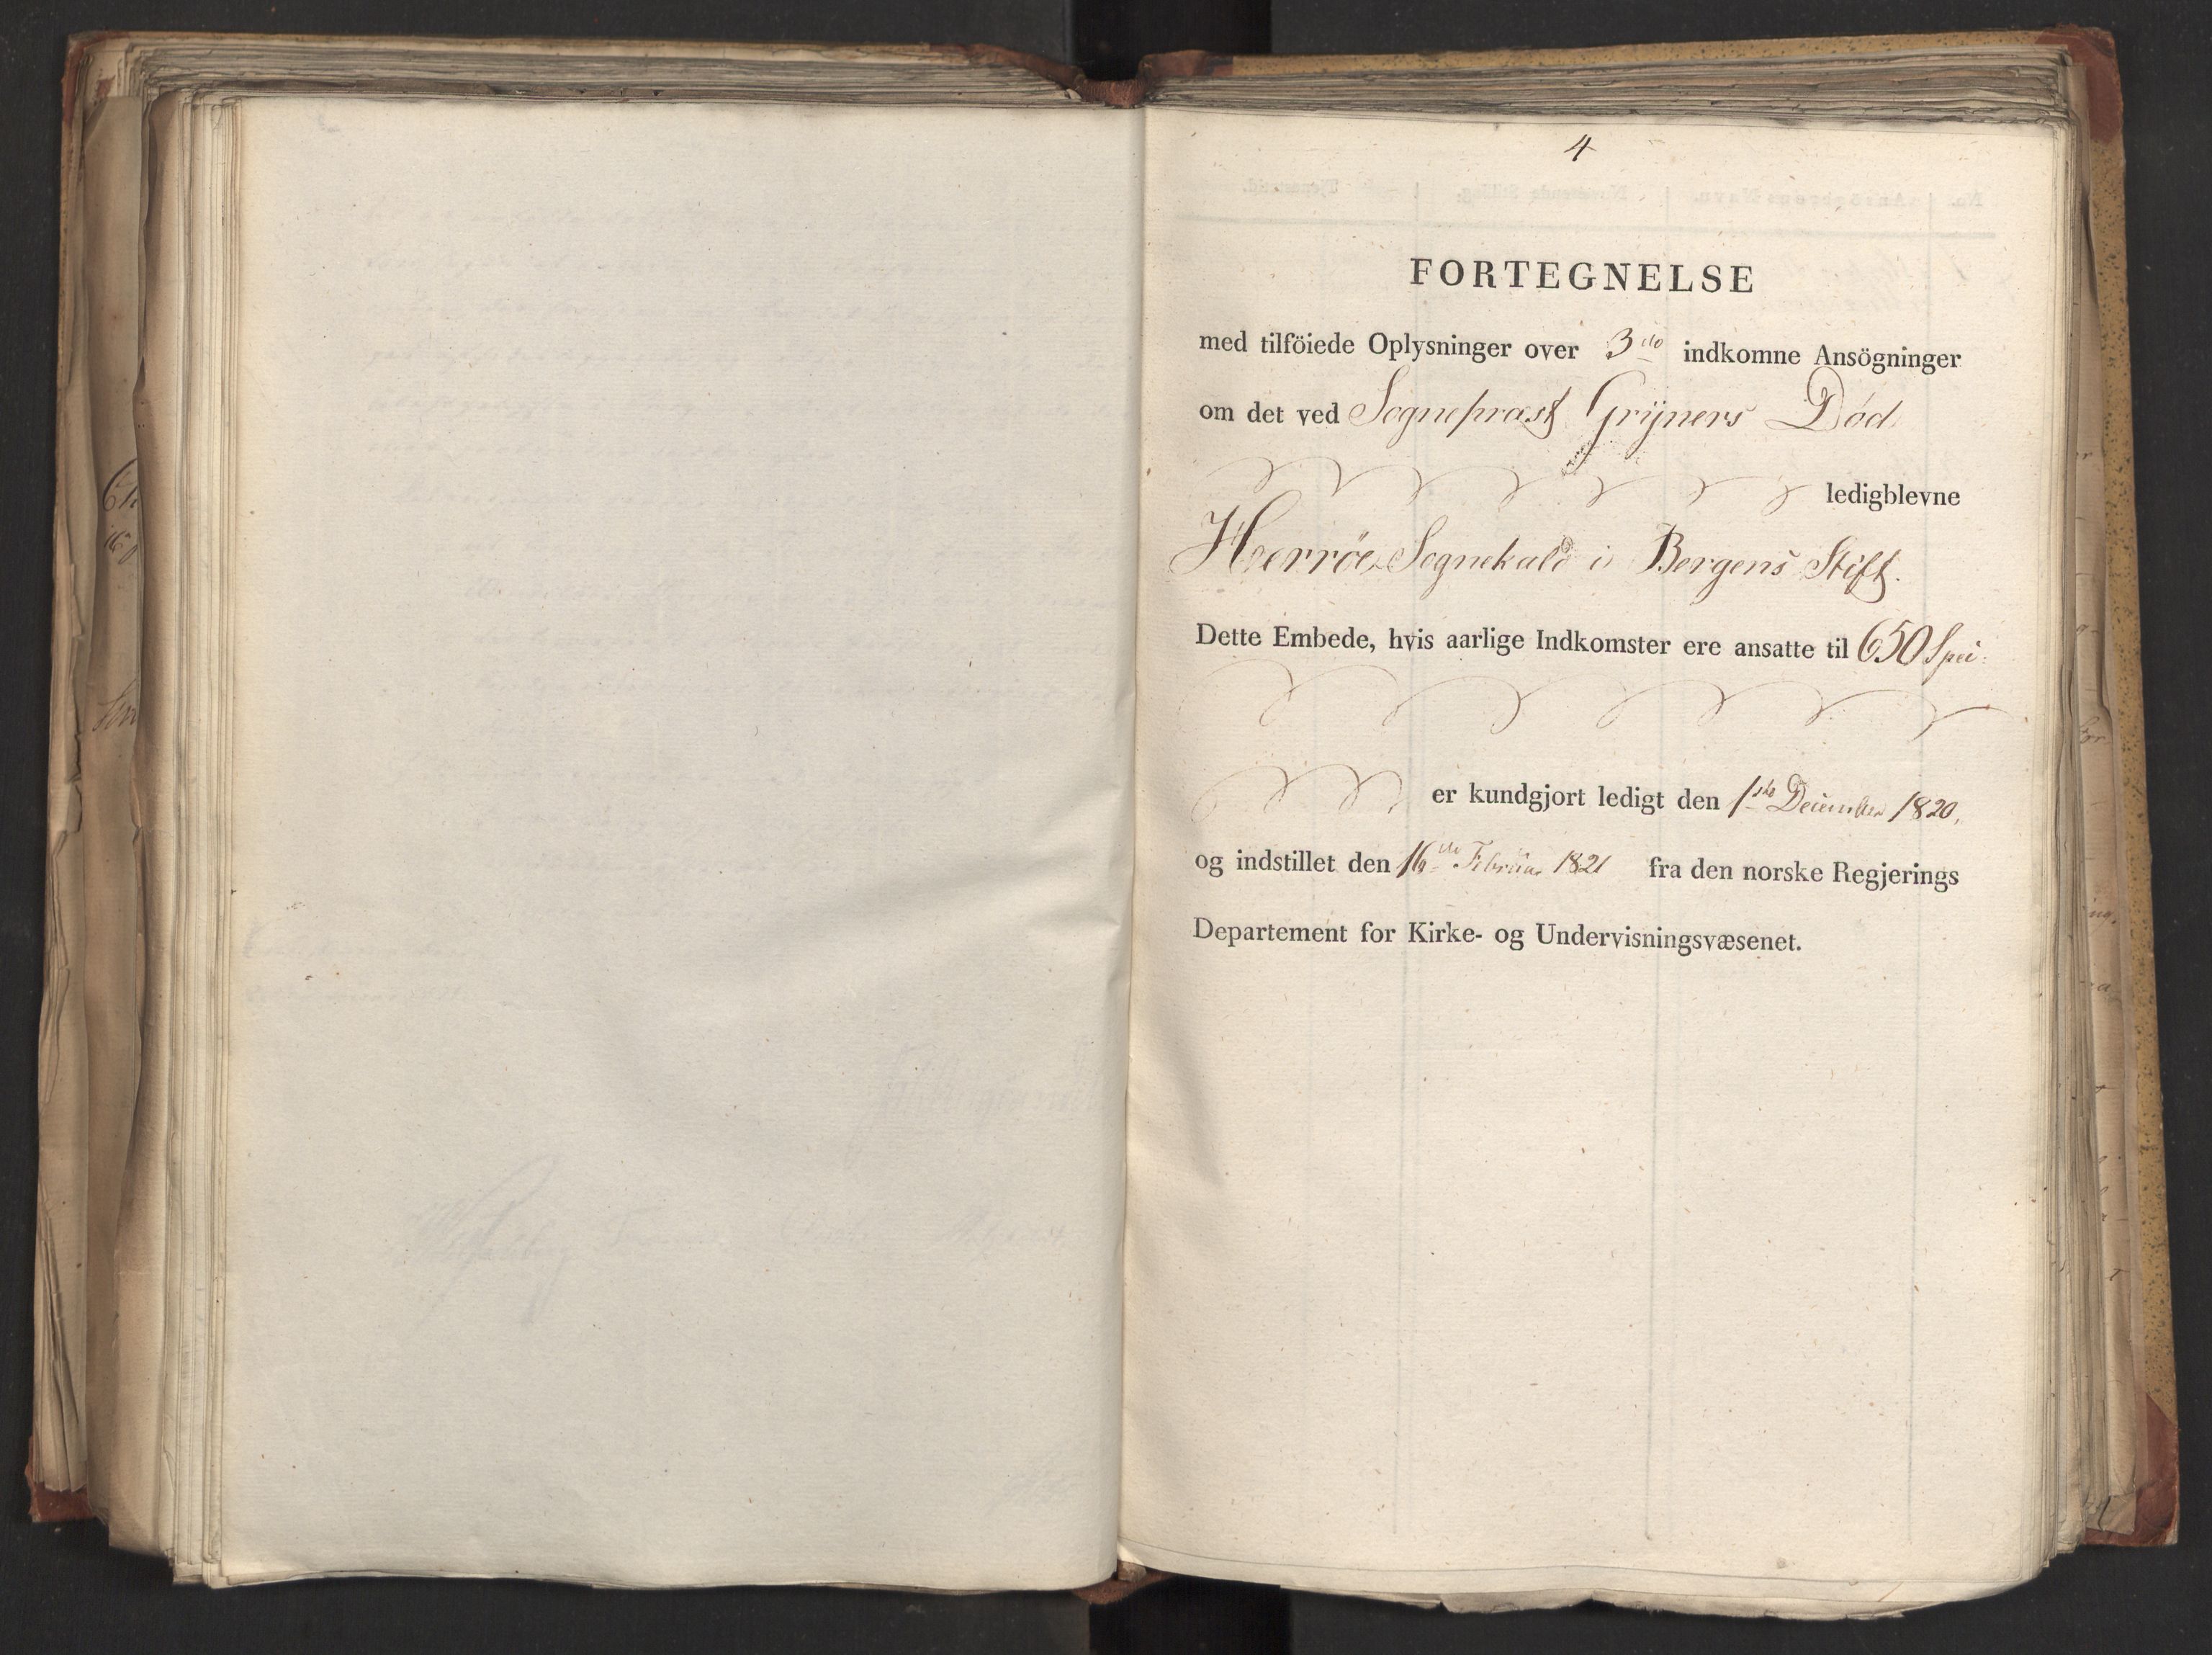 4
FORTEGNELSE
med tilföiede Oplysninger over 3de indkomne Ansögninger
om det ved Sognepræst Grÿners Død
ledigblevne
Herröe Sognekald i Bergens Stift.
Dette Embede, hvis aarlige Indkomster ere ansatte til 650 Spei:
er kundgjort ledigt den 1ste December 1820,
og indstillet den 16de Februar 1821 fra den norske Regjerings
Departement for Kirke- og Undervisningsvæsenet.